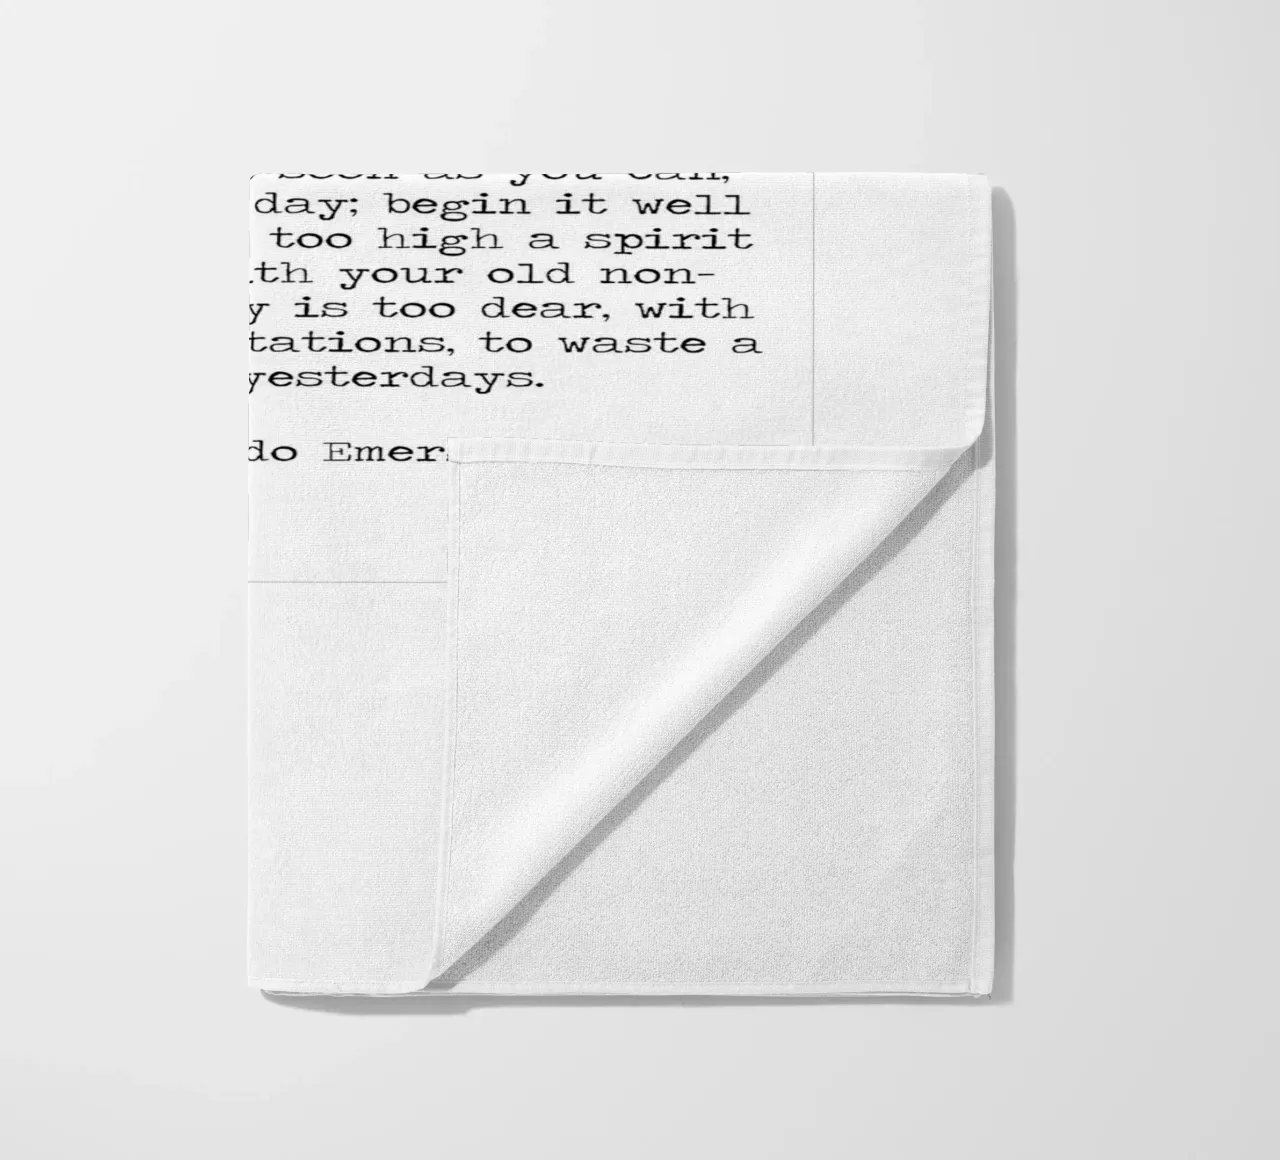 soon as you can,
day; begin it well
too high a spirit
th your old non-
y is too dear, with
tations, to waste a
yesterdays.
do Emer